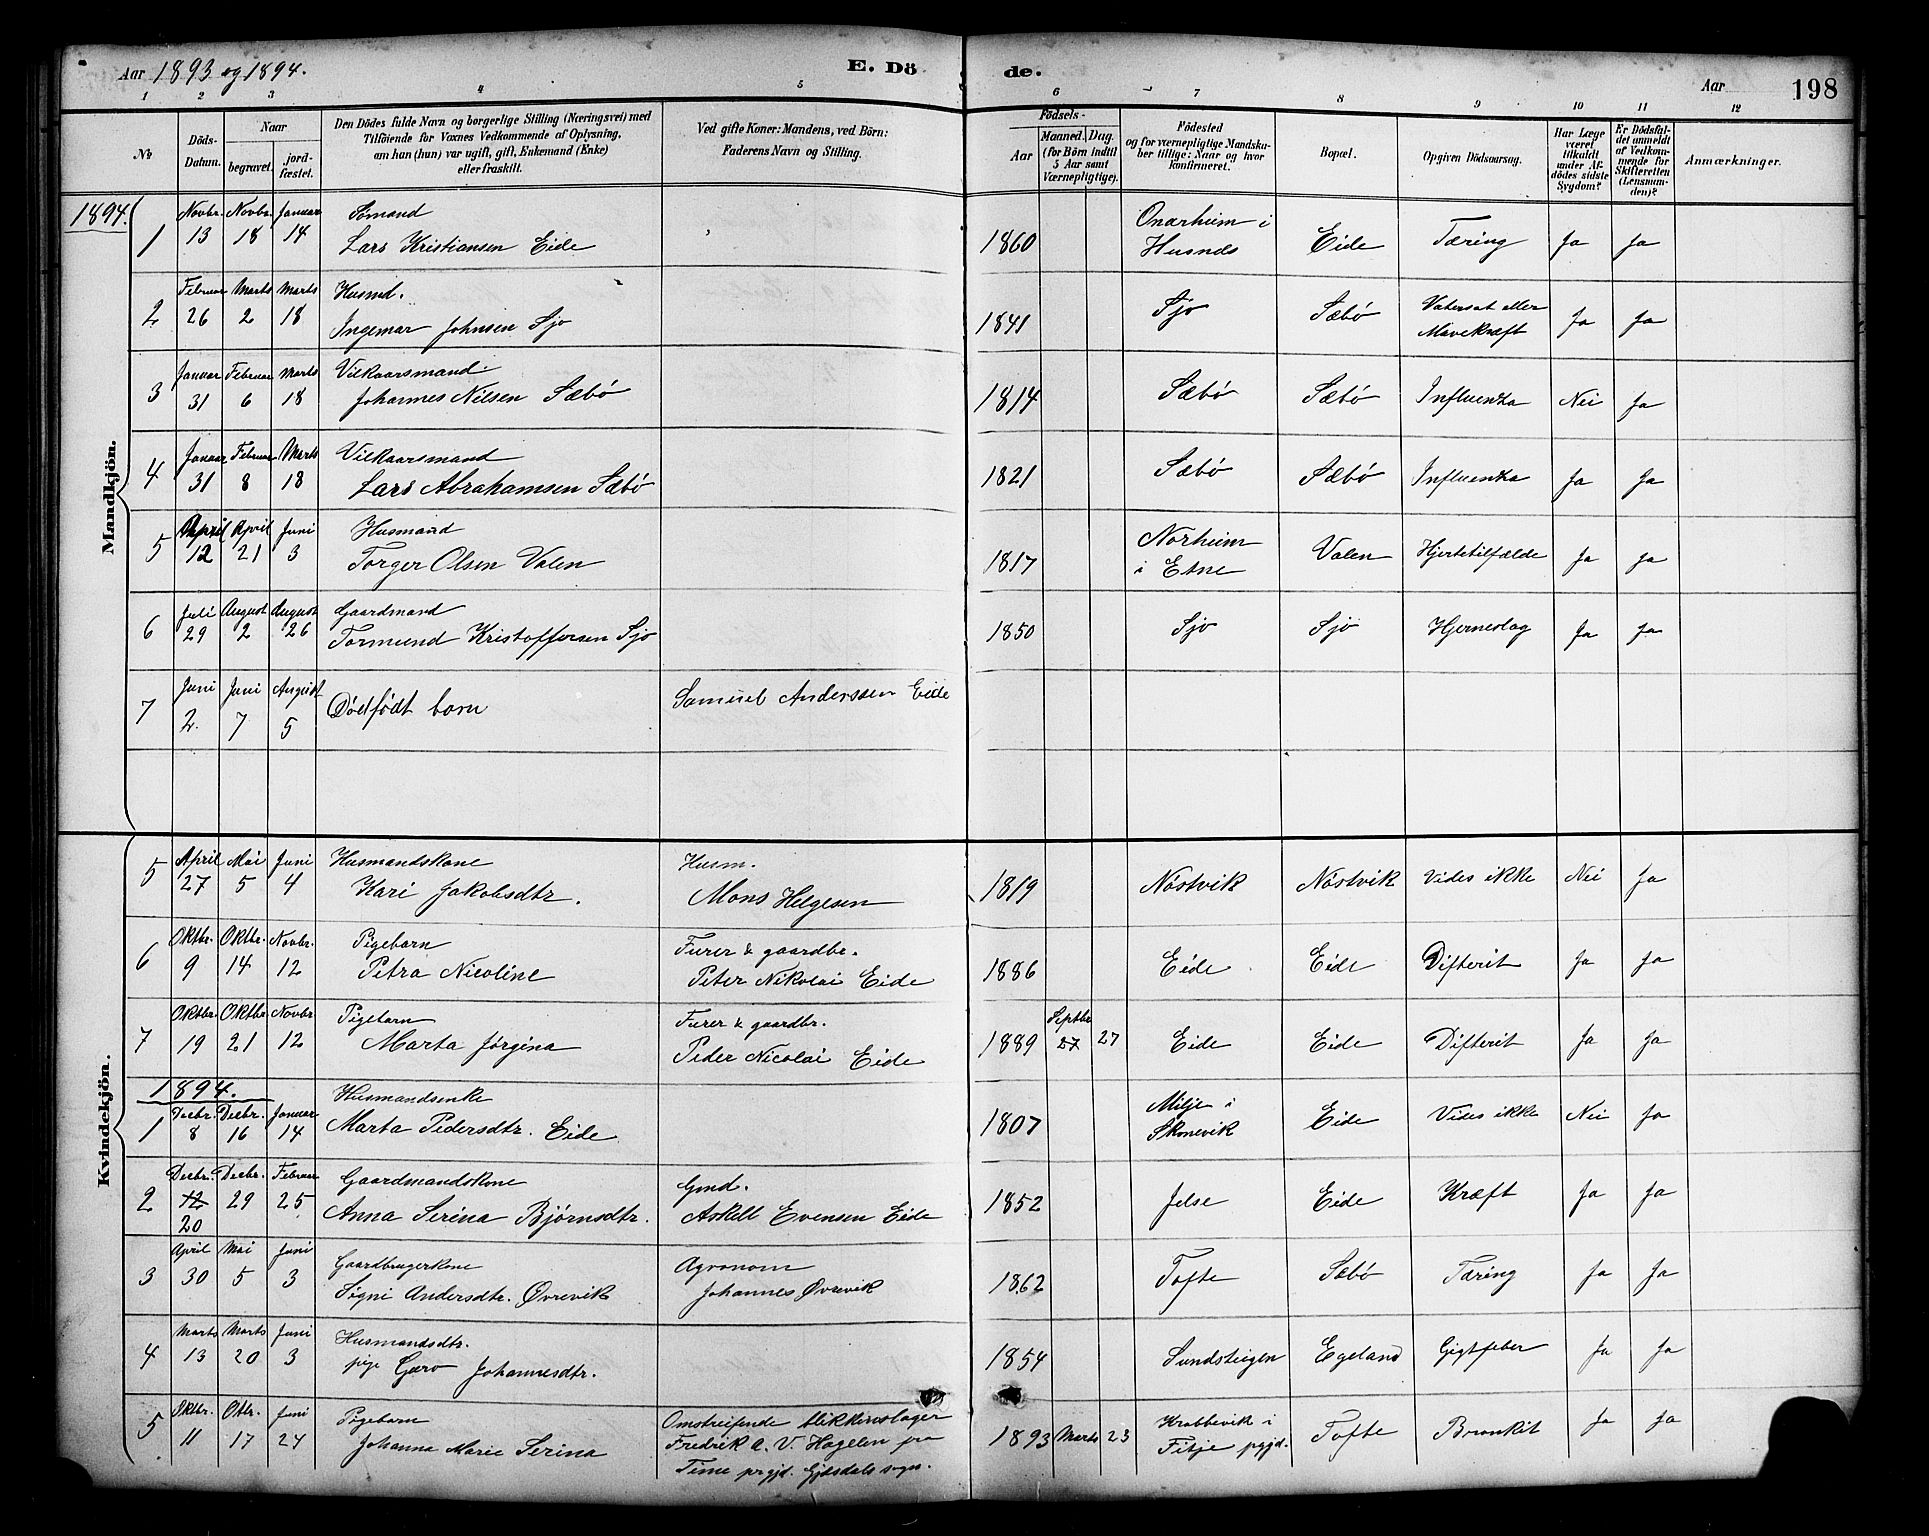 Aar 1893 og 1894.
E. Dö
de.
Aar
198
1 2 3 4 5 6 7 8 9 10 11 12
No
Döds-
Datum.
Naar
begravet.
jord-
fæstet.
Den Dödes fulde Navn og borgerlige Stilling (Næringsvei) med
Tilföiende for Voxnes Vedkommende af Oplysning,
om han (hun) var ugift, gift, Enkemand (Enke)
eller fraskilt.
Ved gifte Koner: Mandens, ved Börn:
Faderens Navn og Stilling.
Födsels-
Aar
Maaned. Dag.
(for Börn indtil
5 Aar samt
Værnepligtige).
Födested
og for værnepligtige Mandsku-
ber tillige: Naar og hvor
konfirmeret.
Bopæl.
Opgiven Dödsaarsag.
Har Læge
været
tilkaldt
under Af-
dödes sidste
Sygdom?
Er Dödsfal-
det anmeldt
af Vedkom-
mende for
Skifteretten
(Lensman-
den)?
Anmærkninger.
Mandkjön.
1894.
1 Novbr. 13 Novbr. 18 Januar 14
Sømand
Lars Kristiansen Eide
1860 Onarheim i
Husnes Eide Tæring Ja Ja
2 Februar 26 Marts 2 Marts 18
Husmd.
Ingemar Johnsen Sjo
1841 Sjo Sæbø Vatersot eller
Mavekræft Ja Ja
3 Januar 31 Februar 6 Marts 18
Vilkaarsmand
Johannes Nilsen Sæbø
1814 Sæbø Sæbø Influenza Nei Ja
4 Januar 31 Februar 8 Marts 18
Vilkaarsmand
Lars Abrahamsen Sæbø
1821 Sæbø Sæbø Influenza Ja Ja
5 April 12 April 21 Juni 3
Husmand
Torger Olsen Valen
1817 Norheim
i Etne Valen Hjertetilfælde Ja Ja
6 Juli 29 August 2 August 26
Gaardmand
Tormund Kristoffersen Sjo
1850 Sjo Sjo Hjerneslag Ja Ja
7 Juni 2. Juni 7 August 5
Dødfødt barn
Samuel Anderssen Eide
Kvindekjön.
5 April 27 Mai 5 Juni 4
Husmandskone
Kari Jakobsdtr.
Husm.
Mons Helgesen
1819 Nøstvik Nøstvik Vides ikke Nei Ja
6 Oktbr. 9 Oktbr. 14 Novbr. 12
Pigebarn
Petra Nicoline
Furer & gaardbr.
Peter Nikolai Eide
1886 Eide Eide Difterit Ja Ja
7 Oktbr. 19 Oktbr 21 Novbr 12
Pigebarn
Marta Jørgina
Furer & gaardbr.
Peder Nicolai Eide
1889 Septbr 27 27 Eide Eide Difterit Ja Ja
1894.
1 Decbr. 8 Decbr. 16 Januar 14
Husmandsenke
Marta Pedersdtr. Eide
1807 Milje i
Skonevik Eide Vides ikke Nei Ja
2 Decbr. 12 20 Decbr. 29 Februar 25
Gaardmandskone
Anna Serina Bjørnsdtr.
Gmd.
Askell Evensen Eide
1852 Jelse Eide Kræft Ja Ja
3 April 30 Mai 5 Juni 3
Gaardbrugerkone
Signi Andersdtr. Øvrevik
Agronom
Johannes Øvrevik
1862 Tofte Sæbø Tæring Ja Ja
4 Marts 13 Marts 20 Juni 3
Husmandsdtr.
pige Gøro Johannesdtr.
1854 Sundsteigen Egeland Gigtfeber Ja Ja
5 Oktbr. 11 Otbr. 17 Juni 24
Pigebarn
Johanna Marie Serina
Omstreifende blikkenslager
Fredrik A. V. Hagelen fra
Time prgjd. Gjesdals sogn.
1893 Marts 23 Krabbevik i
Fitje prgjd. Tofte Bronkit Ja Ja